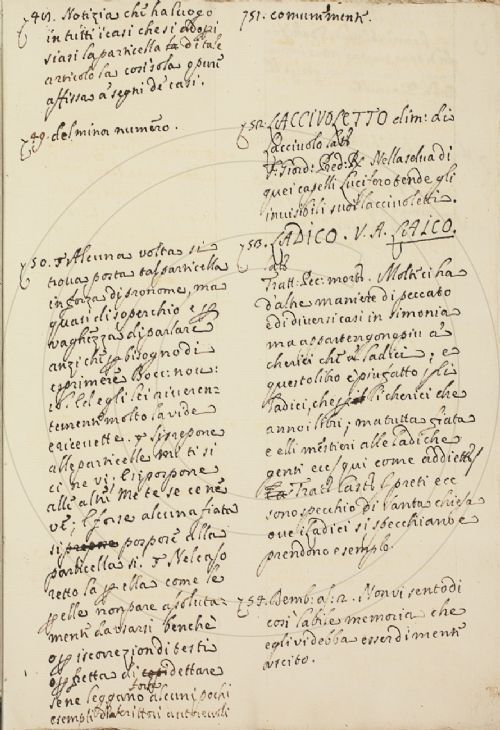 748. Notizia che ha luogo
in tutti i casi che si adopri
siasi la particella la di tale
articolo la così sola o pure
affissa a segni de casi.
749. del mina numero.
750. Alcuna volta si
trova posta tal particella
in forza di pronome, ma
quasi di soperchio e per
vaghezza di parlare
anzi che per bisogno di
esprimere Bocc. nov:
ed egli lei riveren-
temente molto la vide
e ricevette. Si prepone
alle particelle me ti si
ci ne vi; e si pospone
alle altre Me te se ce ne
ve; E forse alcuna fiata
si pospone alla
particella si. Nel caso
retto la per ella come le
per elle non pare assoluta-
mente da usarsi benche
o per iscorrezion di testi
o per fretta di dettare
se ne leggano alcuni pochi
esempli di scrittori autorevoli
751. comunemente.
752. LACCIVOLETTO dim: di
Lacciuolo
F. Giord: Pred: R. Nella selva di
quei capelli Lucifero tende gli
invisibili suoi lacciuoletti.
753. LADICO. V. A. LAICO.
Tratt: Pec: mort: Molti ci ha
d'altre maniere di peccato
e di diversi casi in simonia
ma appartengon piu a
cherici che a ladici; e
questo libro è piu fatto per li
ladici, che per li cherici che
anno libri; ma tutta fiata
e elli mestieri alle ladiche
genti ecc qui come addiett.
Tratt: Cast: I preti ecc
sono specchio di santa chiesa
ove i ladici si specchiano e
prendono esemplo.
754. Bemb. as: 2. Non vi sento di
così labile memoria che
egli vi debba esser di mente
uscito.